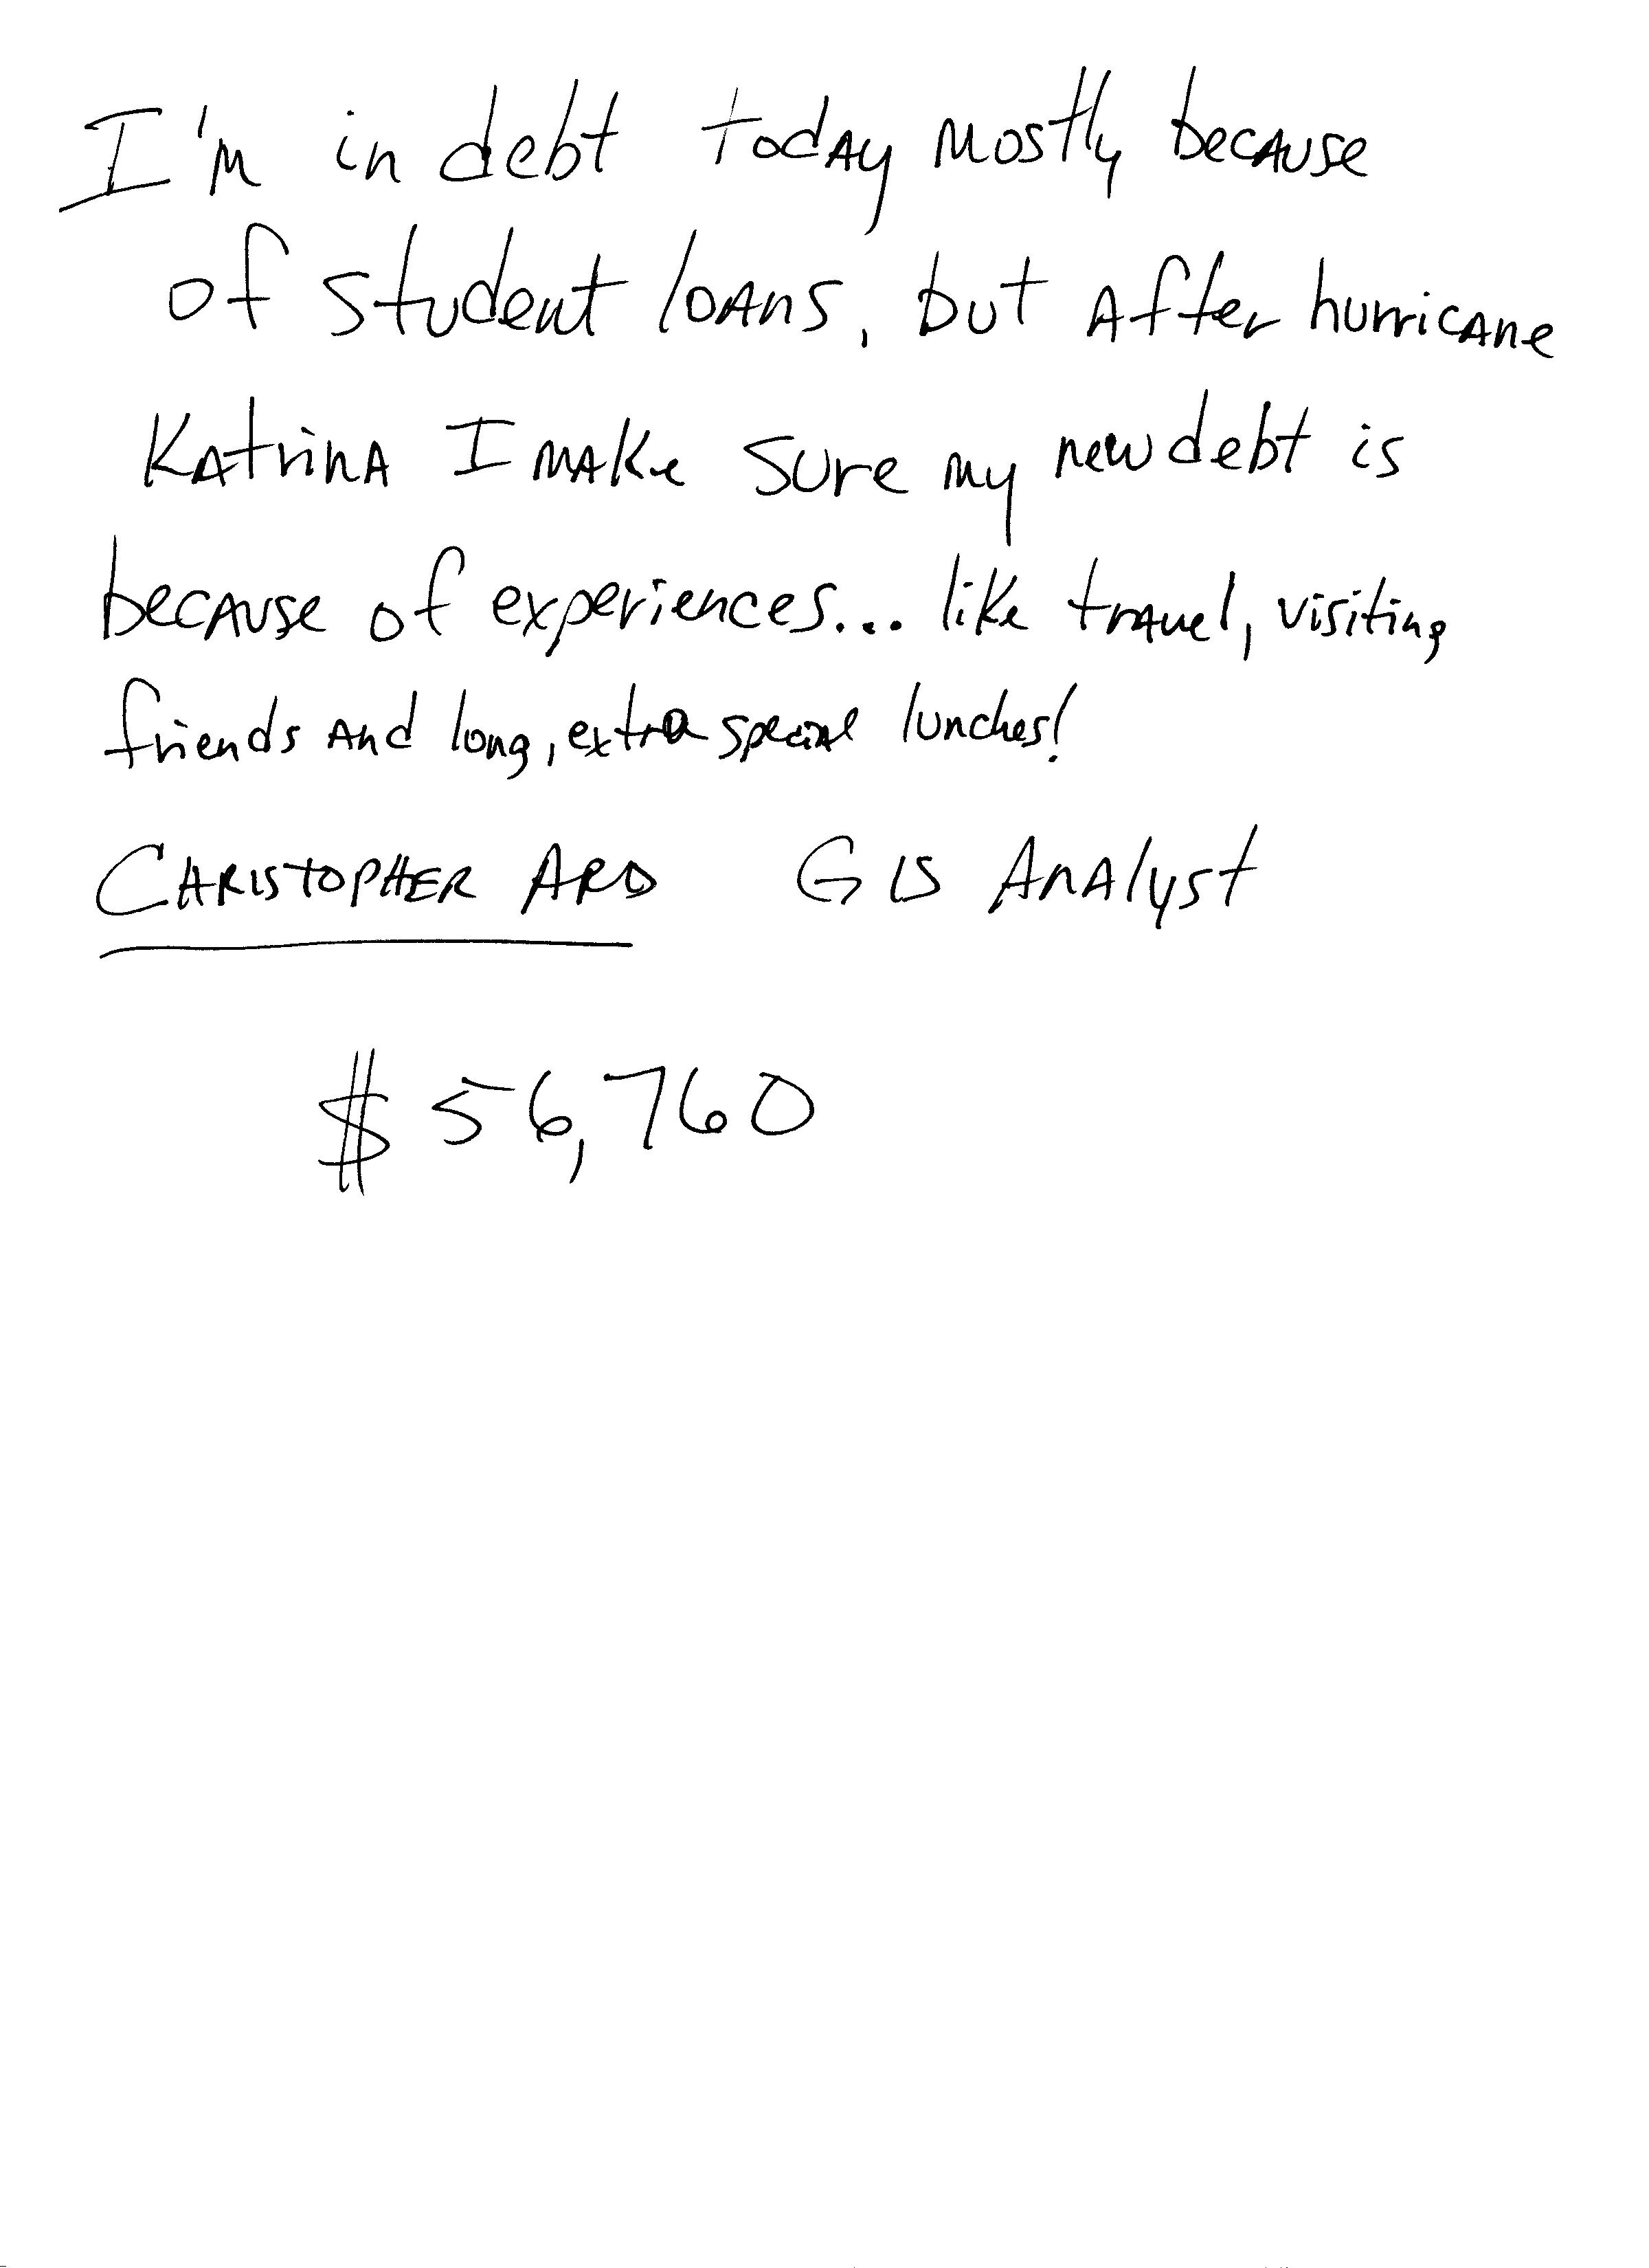 I'm in debt today mostly because
of student loans, but after hurricane
Katrina I make sure my new debt is
because of experiences... like travel, visiting
friends and long, extra special lunches!
CHRISTOPHER ARD GIS Analyst
$56,760